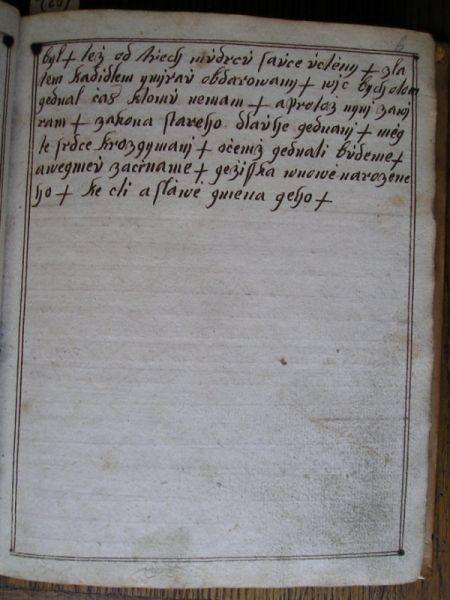 byl + též od třech mudrcu sauce uctény + zla
tem kadidlem ymjrau obdarowanj + wjc bych otom
gednal čas ktomu nemam + aprotož nynj zawj
ram + zakona stareho dlauhe gednanj + měg
te srdce krozgymanj + očemž gednati budeme +
awegmeu začiname + gežisska wnowe narozene
ho + ke cti aslawě gmena geho +